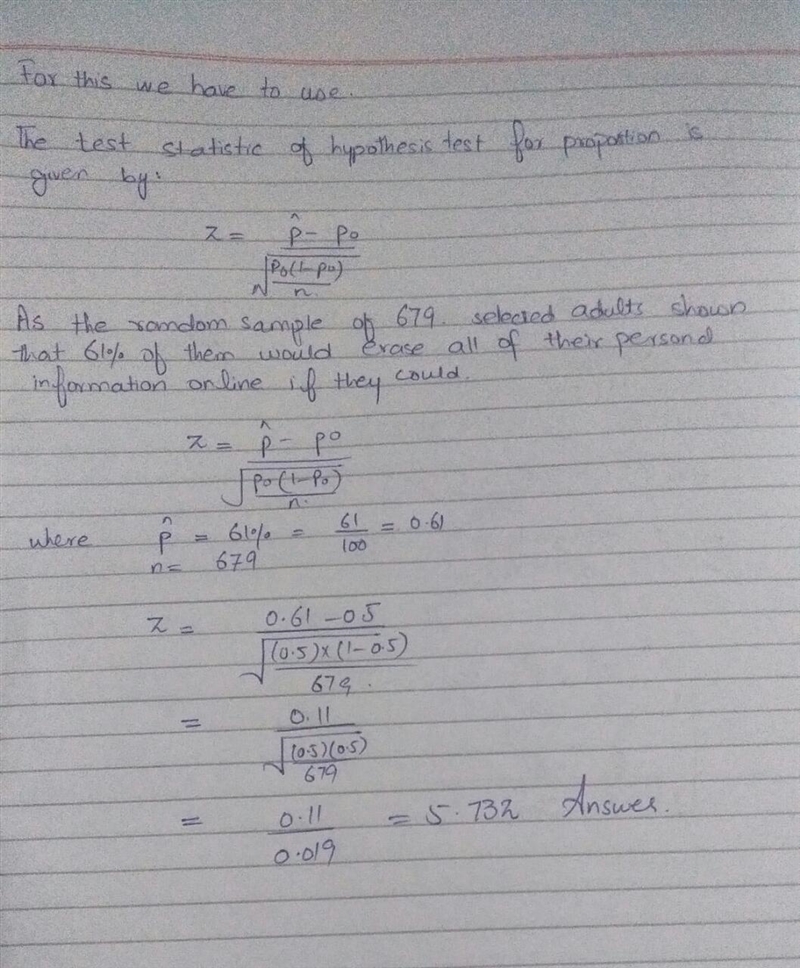 For this we have to use.
The test statistic of hypothesis test for propostion is
given by:
z = p̂ - p0
√p0(1-p0)
n.
As the random sample of 679. selected adults shown
that 61% of them would erase all of their personal
information online if they could.
z = p̂ - p0
√p0(1-p0)
n.
where p̂ = 61% = 61/100 = 0.61
n = 679
z = 0.61 - 0.5
√(0.5)x(1-0.5)
679.
= 0.11
√(0.5)(0.5)
679
= 0.11 = 5.732 Answer.
0.019